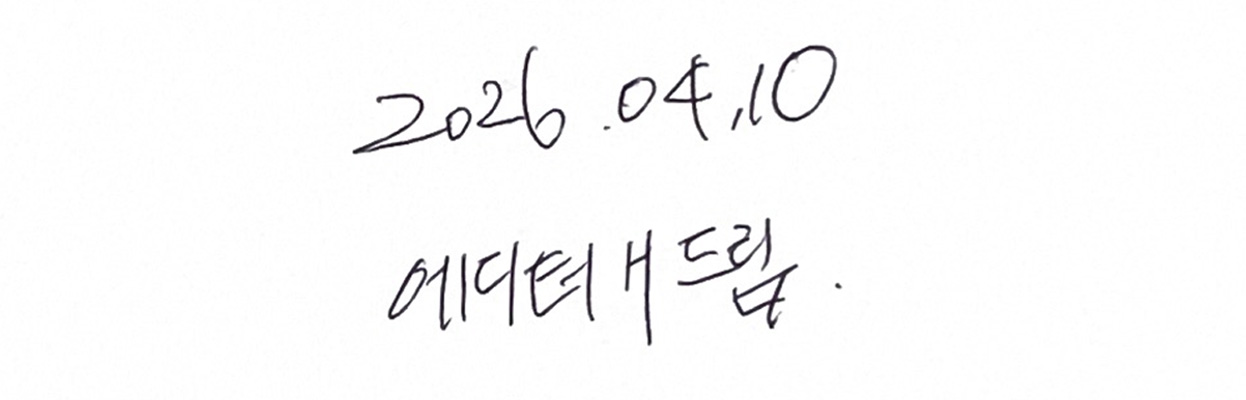 2026.04.10
에디터 H 드림.